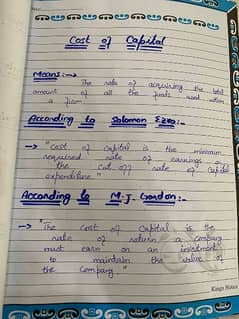 Cost of Capital
Means:-→
The rate of acquiring the total
amount of all the funds used within
a firm.
According to Solomon Ezra:-
→ "Cost of Capital is the minimum
required rate of earnings or
the Cut off rate of Capital
expenditure"
According to M.J. Gordon:-
→ "The Cost of Capital is the
rate of return a Company
must earn on an investment
to maintain the value of
the Company."
Kings Notes